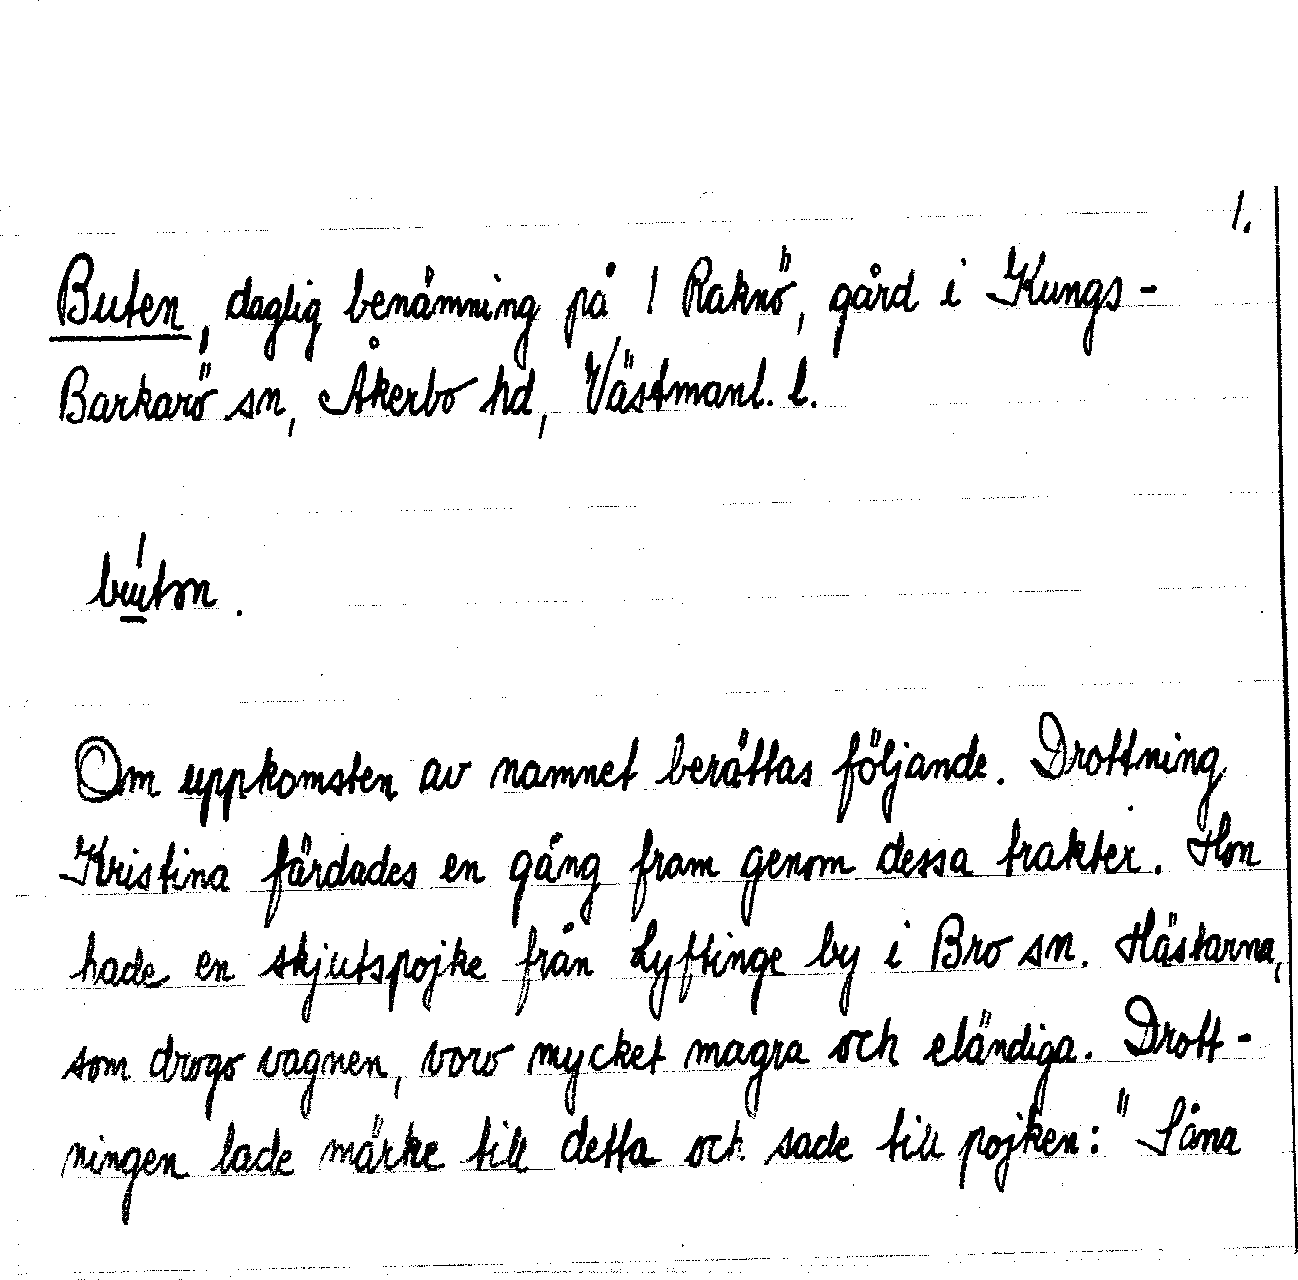 1.
Buten, daglig benämning på ! Raknö, gård i Kungs-
Barkarö sn, Åkerbo hd, Västmanl. l.
Om uppkomsten av namnet berättas följande. Drottning
Kristina färdades en gång fram genom dessa trakter. Hon
hade en skjutspojke från Lyftinge by i Bro sn. Hästarna,
som drogo vagnen, voro mycket magra och eländiga. Drott-
ningen lade märke till detta och sade till pojken: "Såna